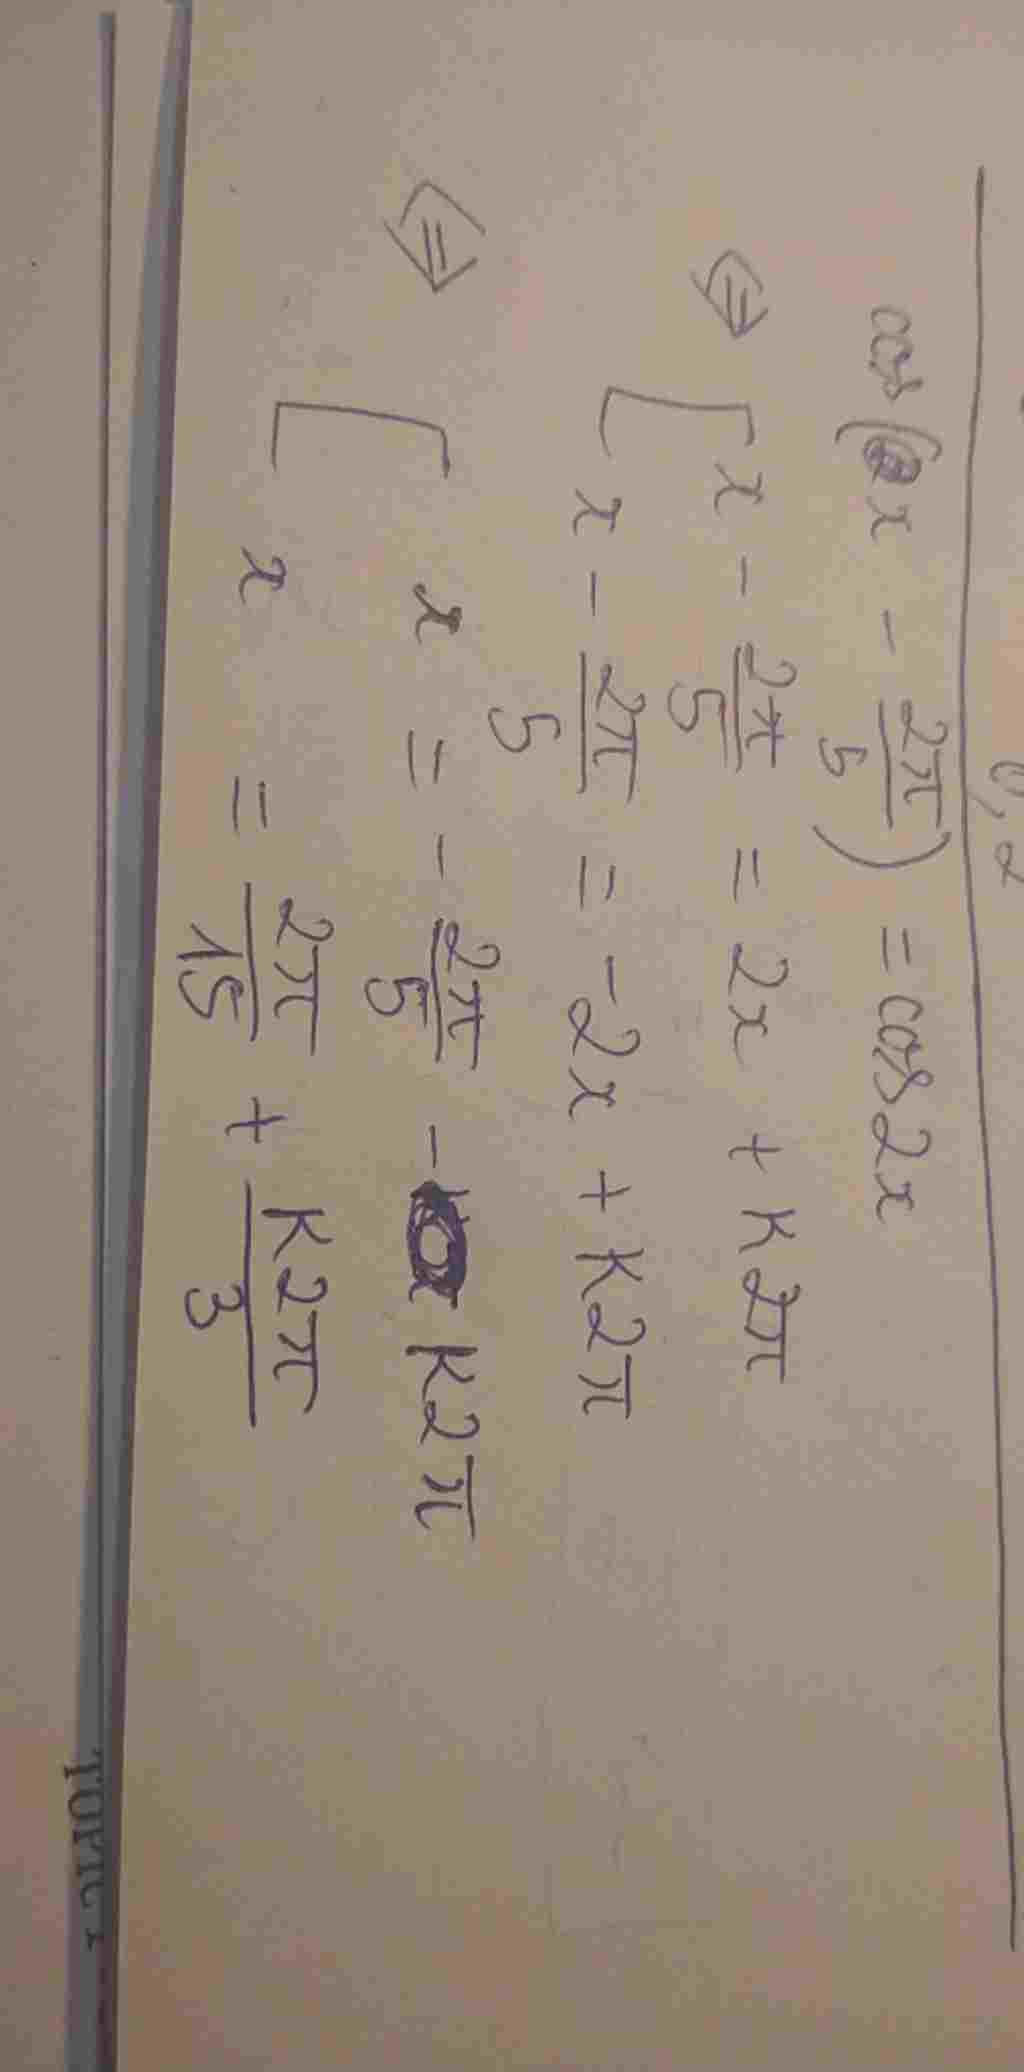 cos(x - 2π/5) = cos2x
⇔ [ x - 2π/5 = 2x + k2π
x - 2π/5 = -2x + k2π
⇔ [ x = - 2π/5 - k2π
x = 2π/15 + k2π/3